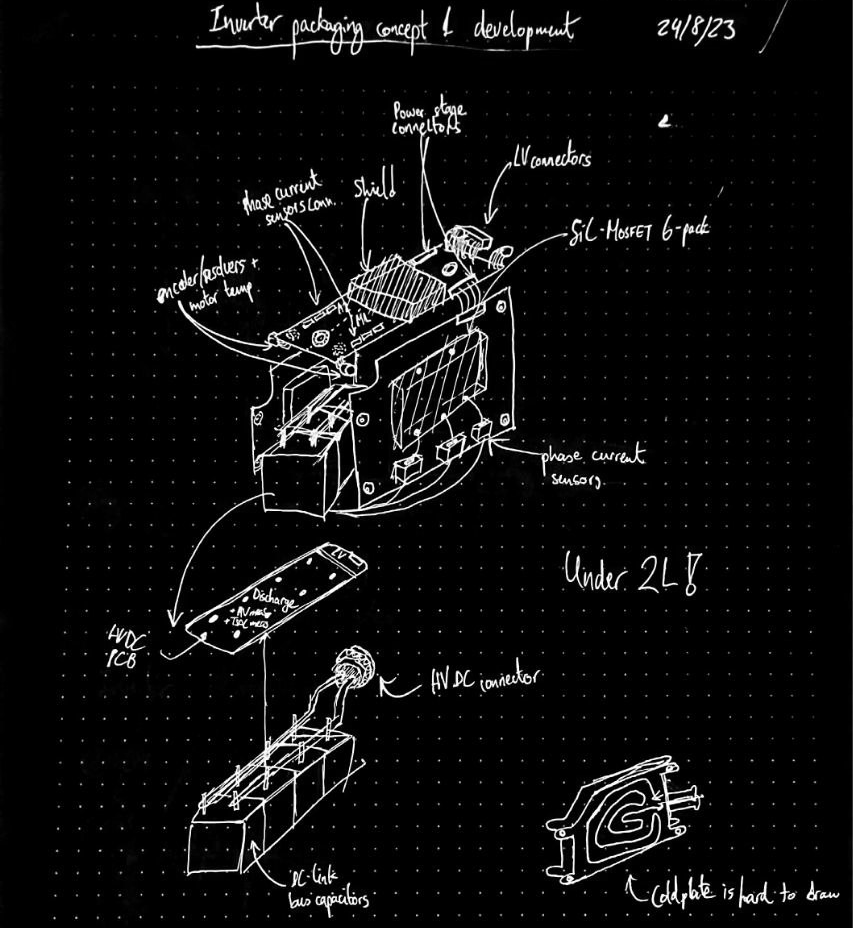 Inverter packaging concept 1 development
24/8/23
Power stage
connectors
LV connectors
phase current
sensors conn.
Shield
SiC-MOSFET 6-pack
encoder/resolvers +
motor temp
phase current
sensors
Under 2L!
LV
Discharge
+ HV meas
HVDC
PCB
HVDC connector
DC-link
bus capacitors
Coldplate is hard to draw